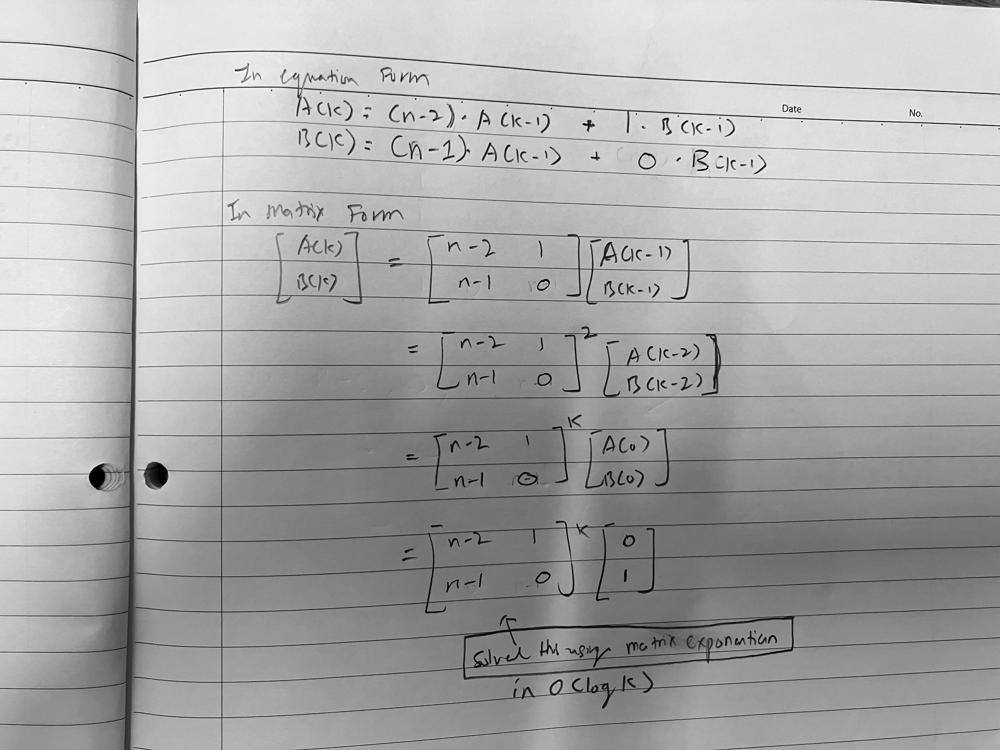 In equation Form
Date
No.
A(k) = (n-2) · A(k-1) + 1 · B(k-1)
B(k) = (n-1) · A(k-1) + 0 · B(k-1)
In matrix Form
[A(k) B(k)] = [n-2 1 n-1 0] [A(k-1) B(k-1)]
= [n-2 1 n-1 0]^2 [A(k-2) B(k-2)]
= [n-2 1 n-1 0]^k [A(0) B(0)]
= [n-2 1 n-1 0]^k [0 1]
solved this using matrix exponention
in O(log k)